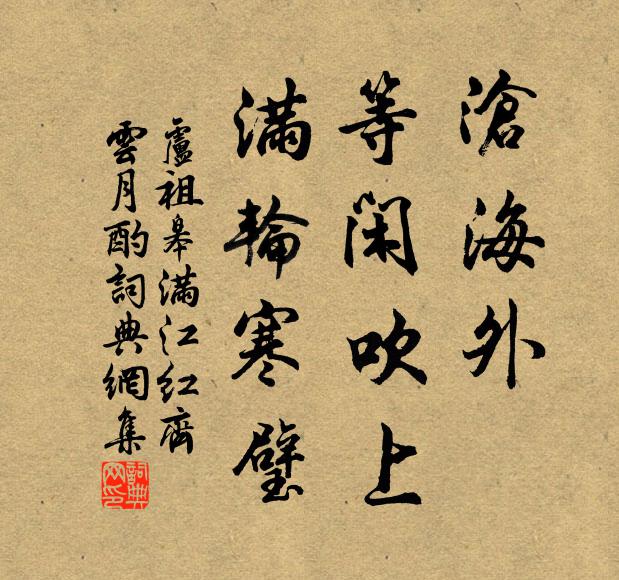 滄海外
等閑吹上
滿輪寒璧
盧祖皋滿江紅齊
雲月酌詞典網集
詞典
网印